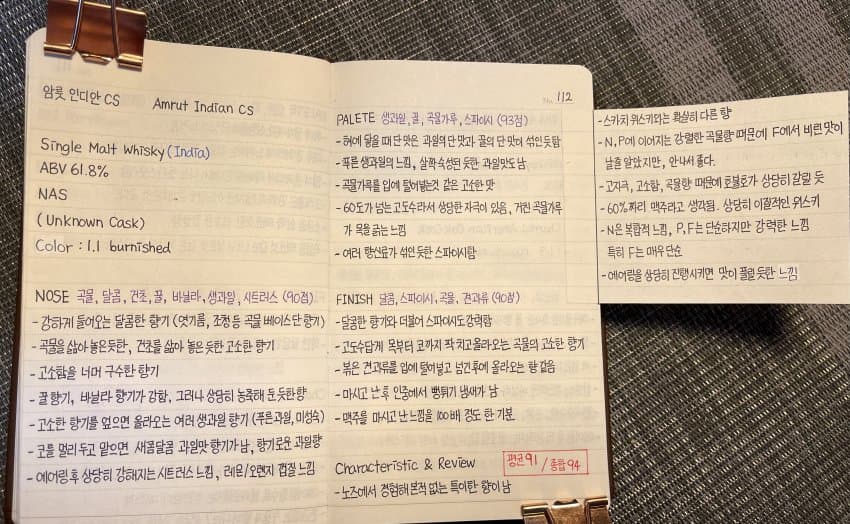 암룻 인디안 CS Amrut Indian CS
Single Malt Whisky (India)
ABV 61.8%
NAS
(Unknown Cask)
Color : 1.1 burnished
NOSE 곡물, 달콤, 건초, 꿀, 바닐라, 생과일, 시트러스 (90점)
- 강하게 들어오는 달콤한 향기 (엿기름, 조청 등 곡물 베이스 단 향기)
- 곡물을 삶아 놓은듯한, 건초를 삶아 놓은 듯한 고소한 향기
- 고소함을 너머 구수한 향기
- 꿀 향기, 바닐라 향기가 강함, 그러나 상당히 농축해 둔 듯한 향
- 고소한 향기를 엎으면 올라오는 여러 생과일 향기 (푸른과일, 미성숙)
- 코를 멀리 두고 맡으면 새콤달콤 과일맛 향기가 남, 향기로운 과일향
- 에어링 후 상당히 강해지는 시트러스 느낌, 레몬/오렌지 껍질 느낌
No. 112
PALETE 생과일, 꿀, 곡물가루, 스파이시 (93점)
- 혀에 닿을 때 단 맛은 과일의 단 맛과 꿀의 단 맛이 섞인 듯 함
- 푸른 생과일의 느낌, 살짝 숙성된 듯한 과일맛도 남
- 곡물가루를 입에 털어넣은 것 같은 고소한 맛
- 60도가 넘는 고도수라서 상당한 자극이 있음, 거친 곡물가루
가 목을 긁는 느낌
- 여러 향신료가 섞인 듯한 스파이시함
FINISH 달콤, 스파이시, 곡물, 견과류 (90점)
- 달콤한 향기와 더불어 스파이시도 강력함
- 고도수답게 목부터 코까지 팍 치고 올라오는 곡물의 고소한 향기
- 볶은 견과류를 입에 털어넣고 넘긴 후에 올라오는 향 같음
- 마시고 난 후 인중에서 뻥튀기 냄새가 남
- 맥주를 마시고 난 느낌을 100배 정도 한 기분
Characteristic & Review 평균 91 / 종합 94
- 노즈에서 경험해본적 없는 특이한 향이 남
- 스카치 위스키와는 확실히 다른 향
- N, P에 이어지는 강렬한 곡물향 때문에 F에서 비린 맛이
날 줄 알았지만, 안 나서 좋다.
- 고자극, 고소함, 곡물향 때문에 호불호가 상당히 갈릴 듯
- 60%짜리 맥주라고 생각됨. 상당히 이질적인 위스키
- N은 복합적 느낌, P, F는 단순하지만 강력한 느낌
특히 F는 매우 단순
- 에어링을 상당히 진행시키면 맛이 풀릴 듯한 느낌